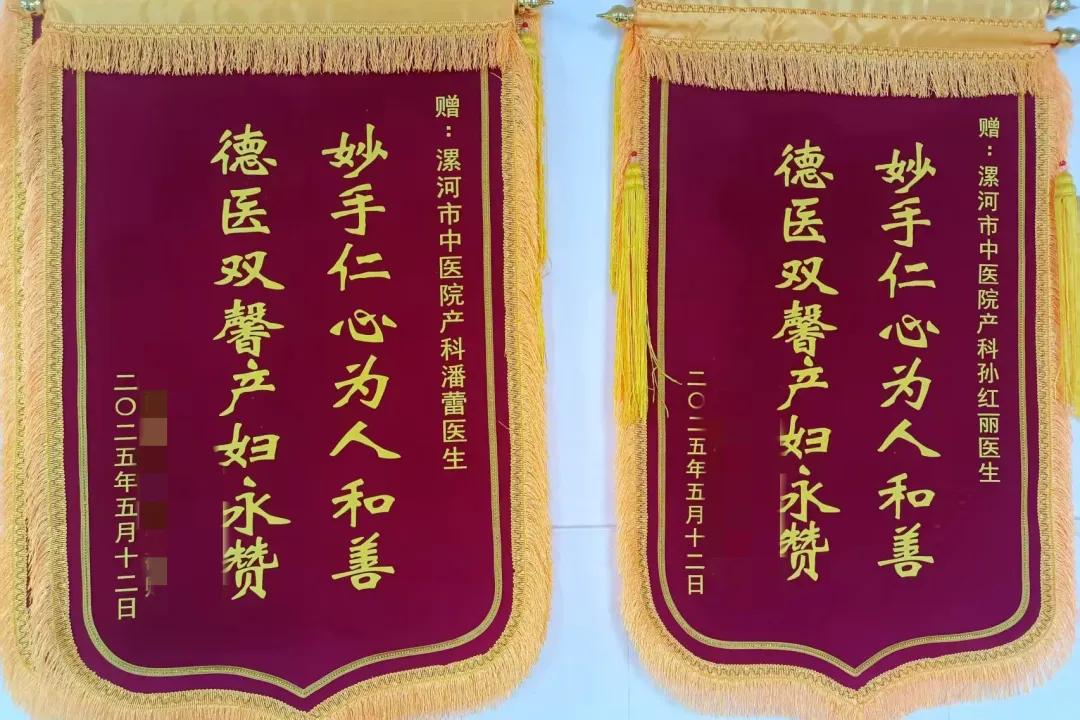 赠：漯河市中医院产科潘蕾医生
妙手仁心为人和善
德医双馨产妇永赞
二〇二五年五月十二日
赠：漯河市中医院产科孙红丽医生
妙手仁心为人和善
德医双馨产妇永赞
二〇二五年五月十二日